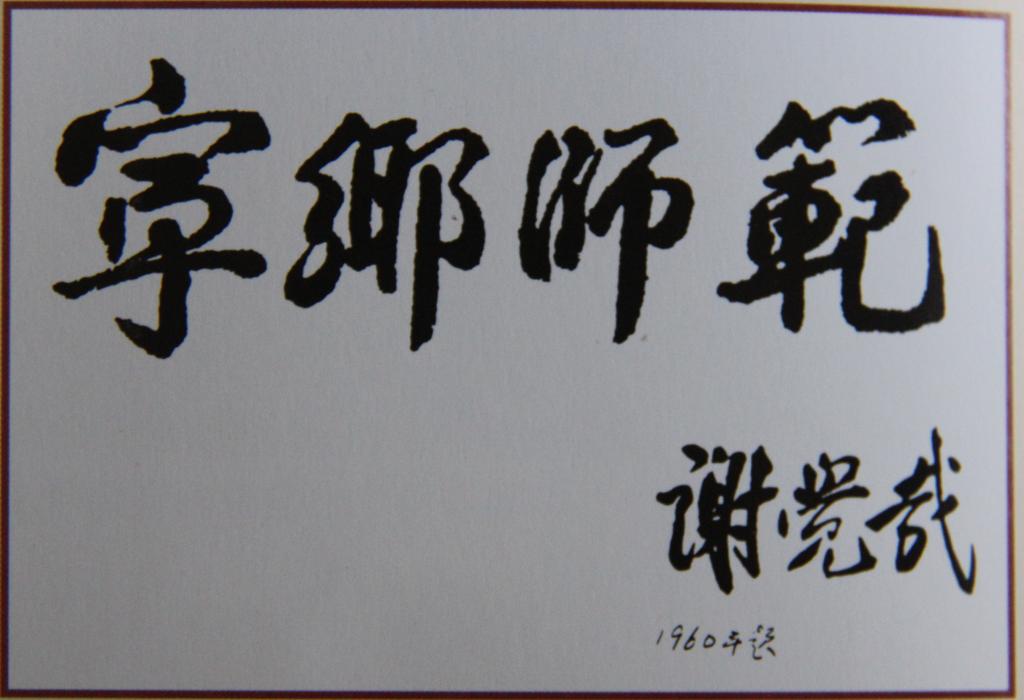 寧鄉师範
谢觉哉
1960年题